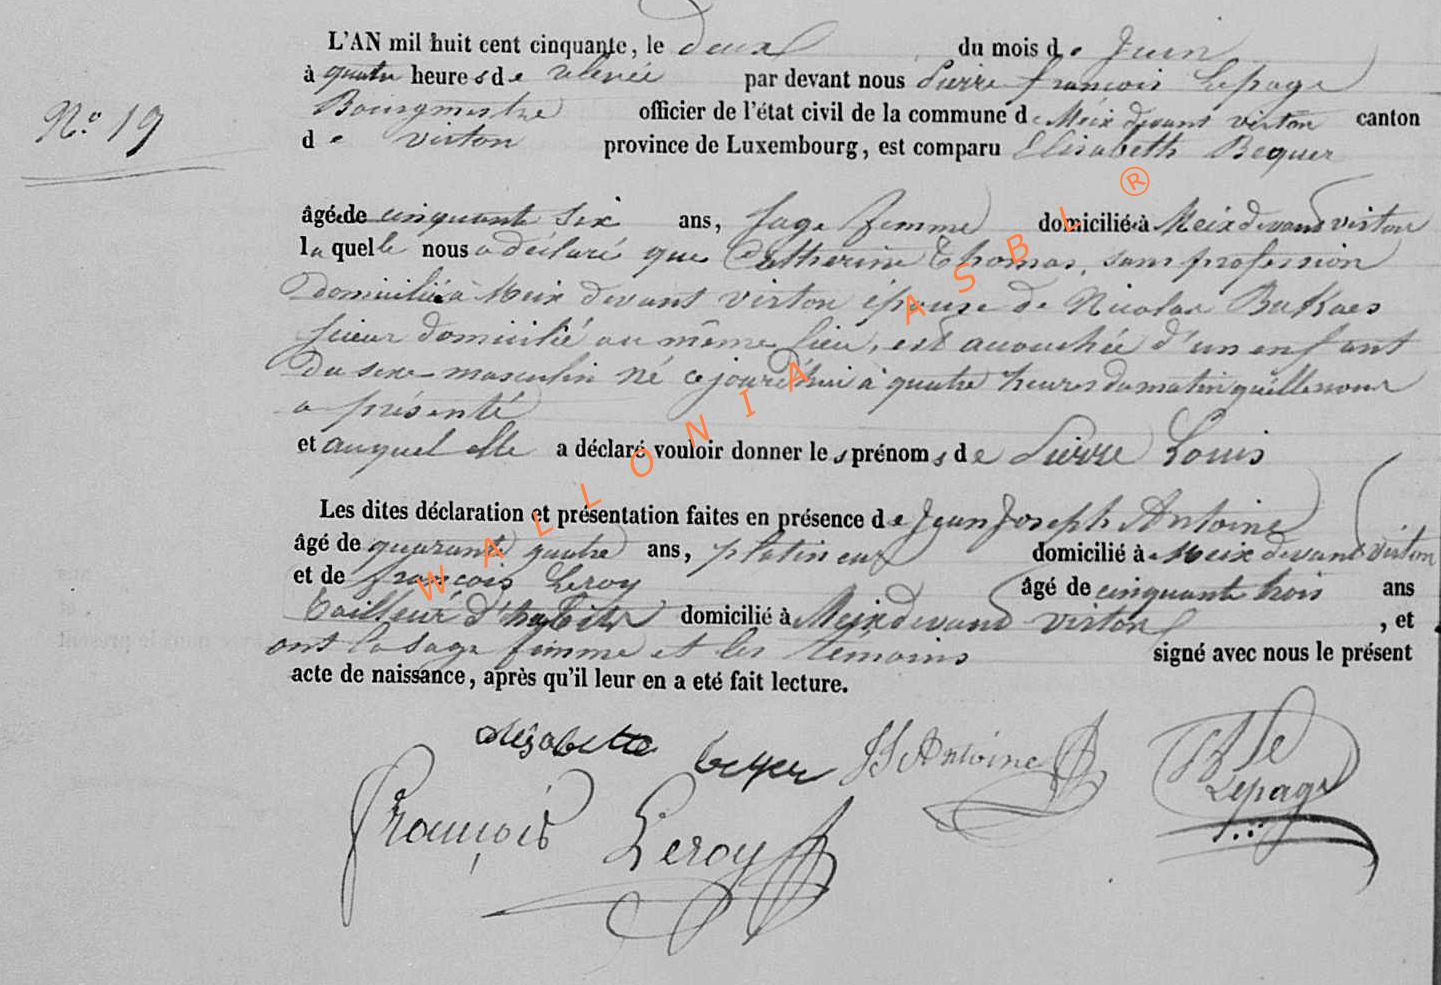 L'AN mil huit cent cinquante, le deux du mois de Juin
à quatre heures de relevée par devant nous Pierre françois Lepage
Bourgmestre officier de l'état civil de la commune de Meix devant virton canton
N.o 19
de virton province de Luxembourg, est comparu Elisabeth Bequer
âgée de cinquante six ans, sage femme domiciliée à Meix devant virton
laquelle nous a déclaré que Catherine Thomas, sans profession
domiciliée à Meix devant virton épouse de Nicolas Bakaes
scieur domicilié au même lieu, est accouchée d'un enfant
du sexe masculin né ce jourd'hui à quatre heures du matin qu'elle nous
a présenté
et auquel elle a déclaré vouloir donner les prénoms de Pierre Louis
Les dites déclaration et présentation faites en présence de Jean Joseph Antoine
âgé de quarante quatre ans, platineur domicilié à Meix devant virton
et de françois Leroy âgé de cinquante trois ans
tailleur d'habits domicilié à Meix devant virton, et
ont la sage femme et les témoins signé avec nous le présent
acte de naissance, après qu'il leur en a eté fait lecture.
WALLONIA ASBL ®
elisabette JJ Antoine
Lepage
François Leroy